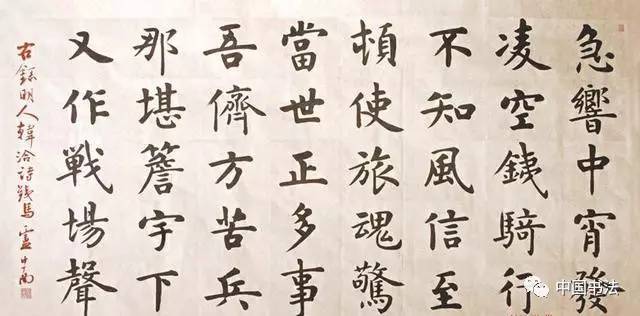 急響中宵發
凌空鐵騎行
不知風信至
頓使旅魂驚
當世正多事
吾儕方苦兵
那堪簷宇下
又作戰場聲
右錄明人韓洽詩鐵馬 盧中南
中国书法